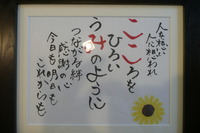 人を想い
人に想われ
こころを
ひろい
うみのように
つながる絆
感謝の心
今日も明日も
これからも